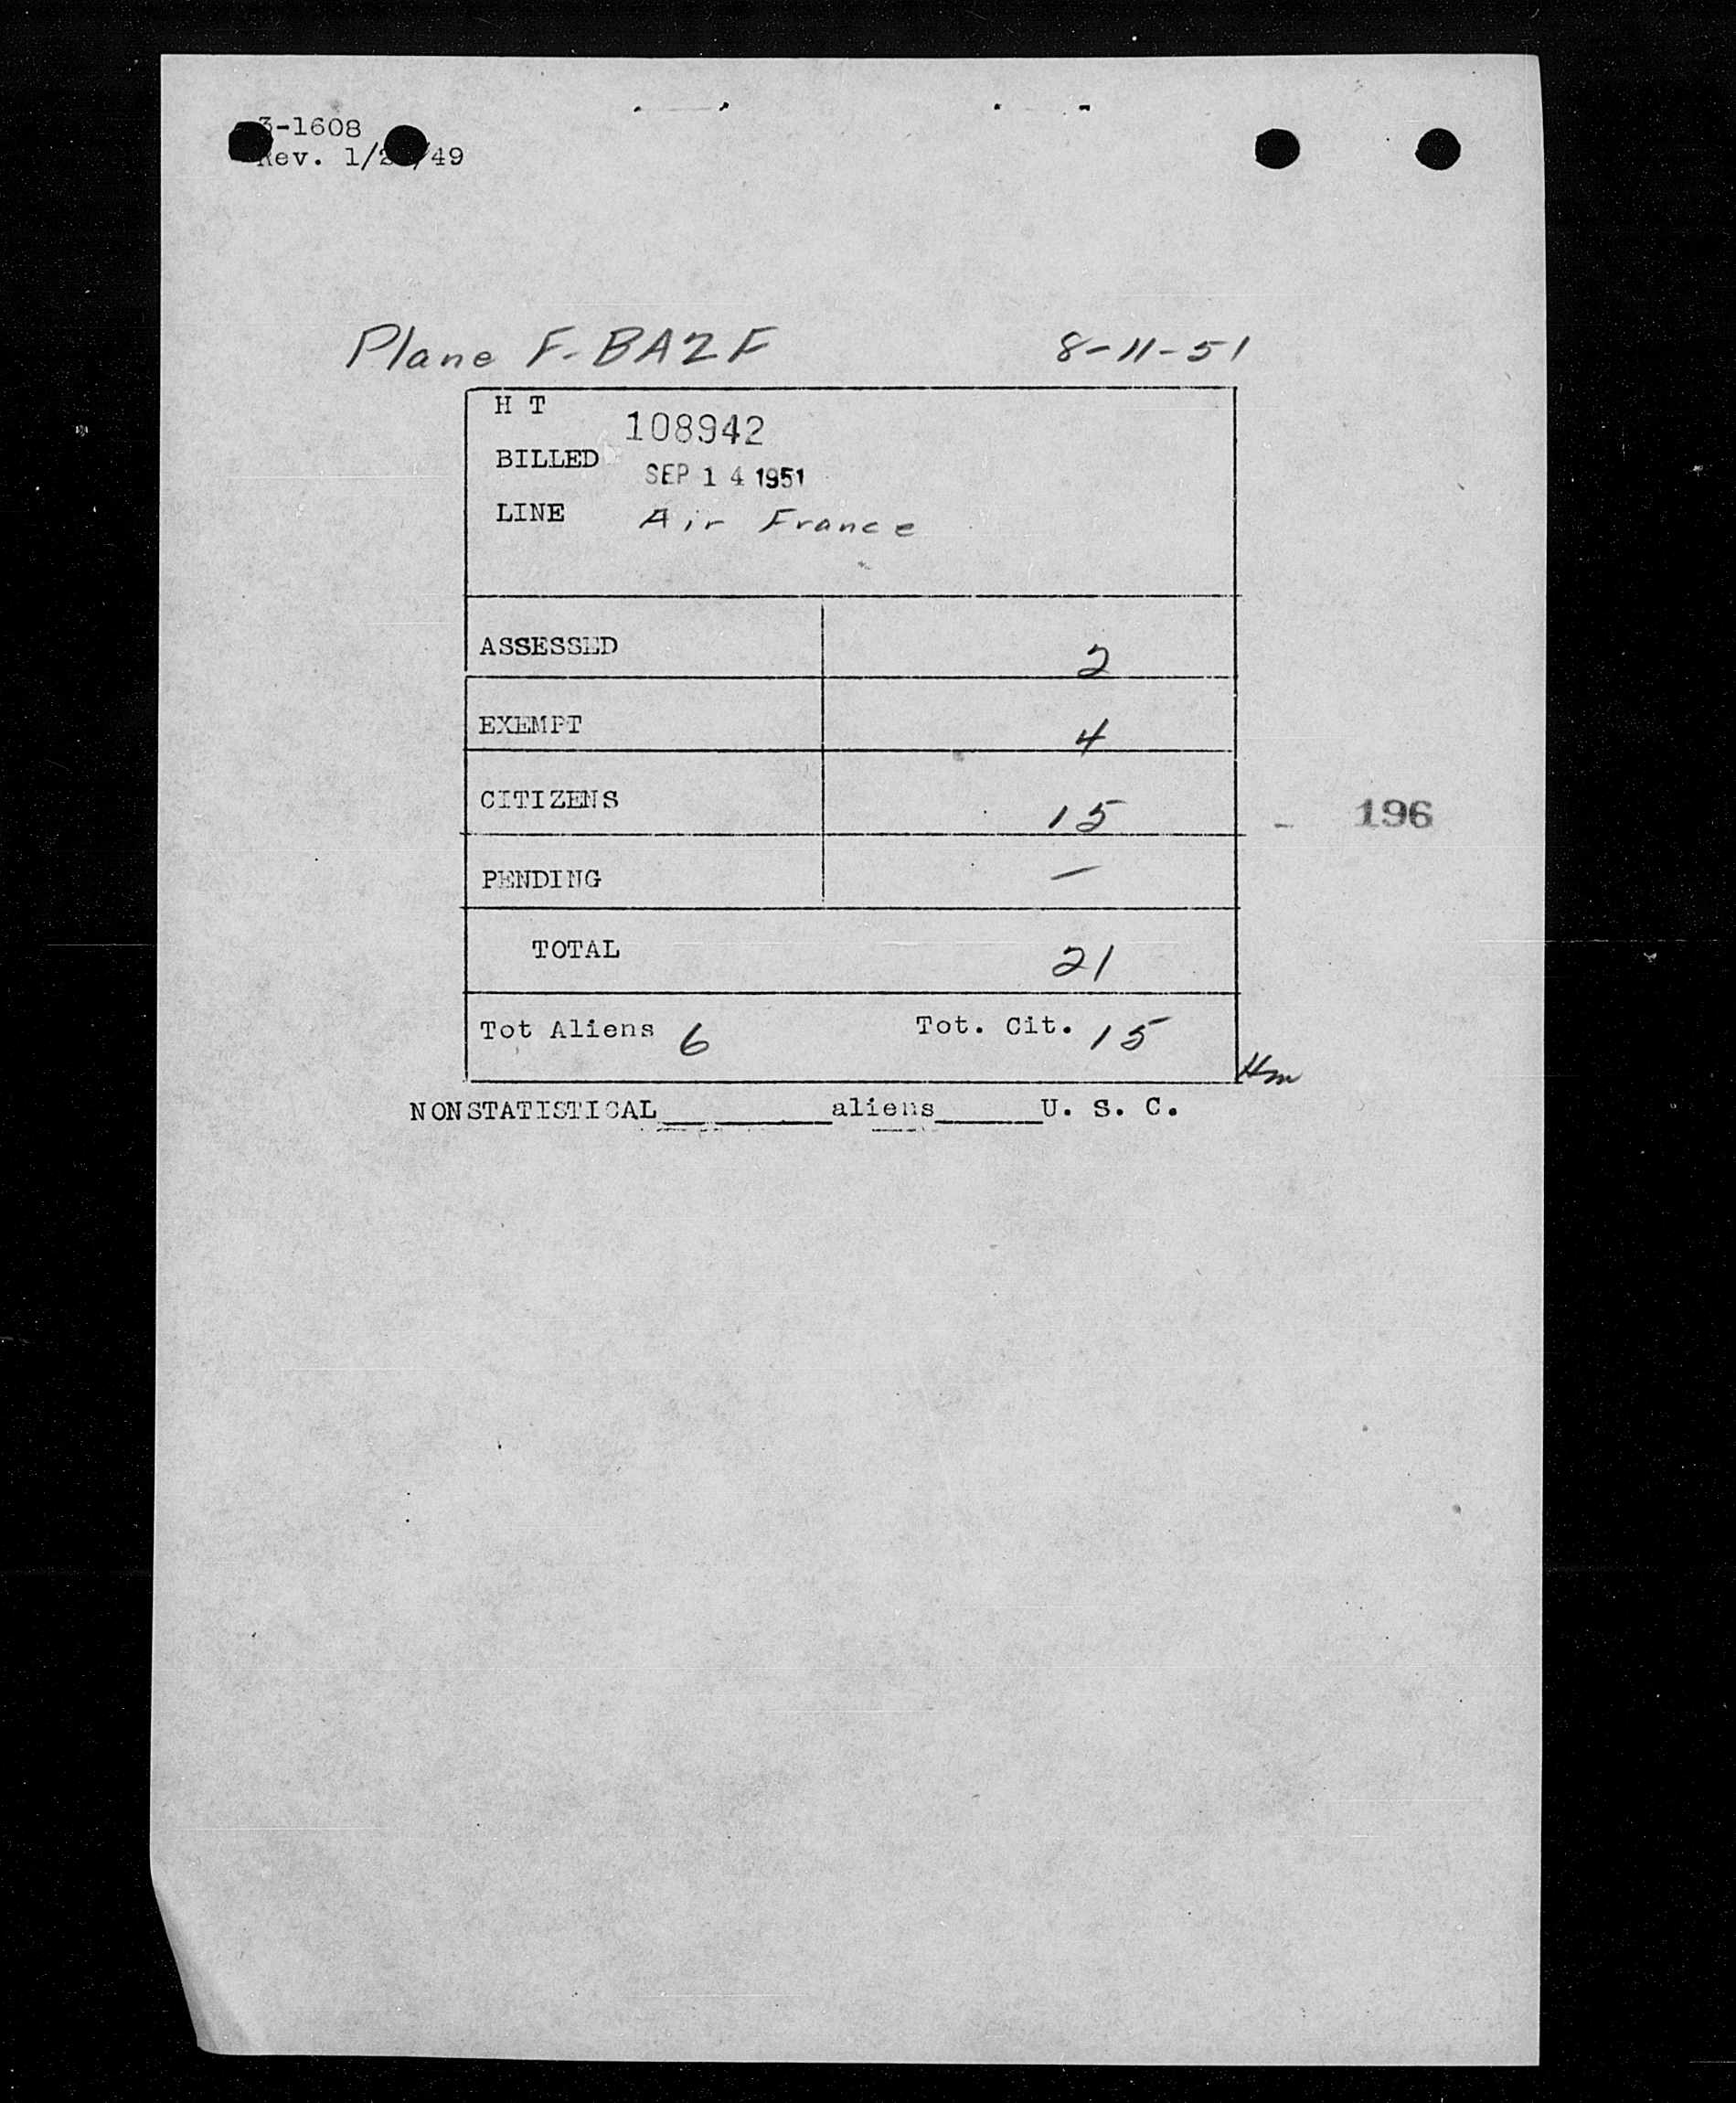 3-1608
Rev. 1/2 /49
Plane F-BAZF 8-11-51
H T 108942
BILLED SEP 14 1951
LINE Air France
ASSESSED 2
EXEMPT 4
CITIZENS 15
196
PENDING —
TOTAL 21
Tot Aliens 6 Tot. Cit. 15
Hm
NONSTATISTICAL________aliens_____U. S. C.